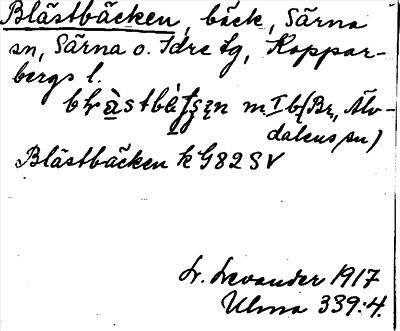 Blästbäcken, bäck, Särna
sn, Särna o. Idre tg, Koppar-
bergs l.
m I b (Br, Älv-
dalens sn)
Blästbäcken k G82SV
L. Levander 1917
Ulma 339:4.